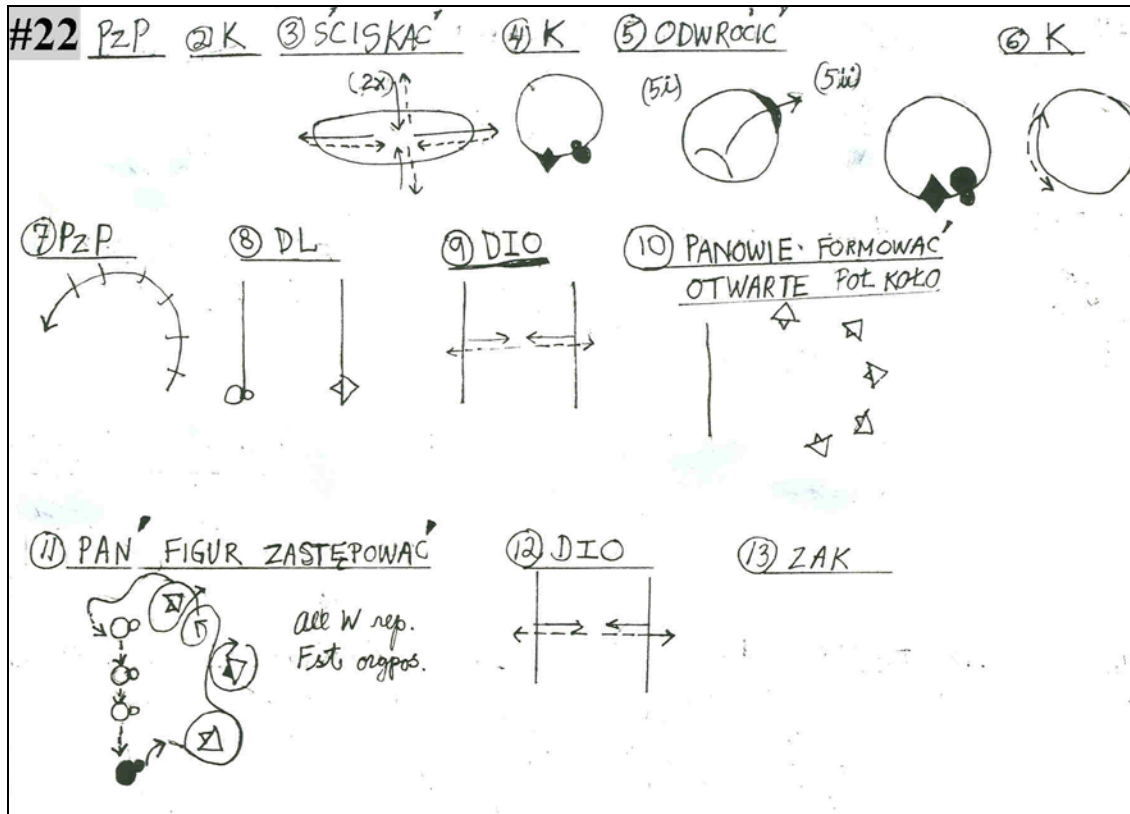 #22 PzP ② K ③ ŚCISKAĆ ④ K ⑤ ODWRÓCIĆ ⑥ K
(2x) (5i) (5ii)
⑦ PzP ⑧ DL ⑨ DIO ⑩ PANOWIE FORMOWAĆ
OTWARTE POŁ KOŁO
⑪ PAŃ FIGUR ZASTĘPOWAĆ ⑫ DIO ⑬ ZAK
all W rep.
Fst orgpos.